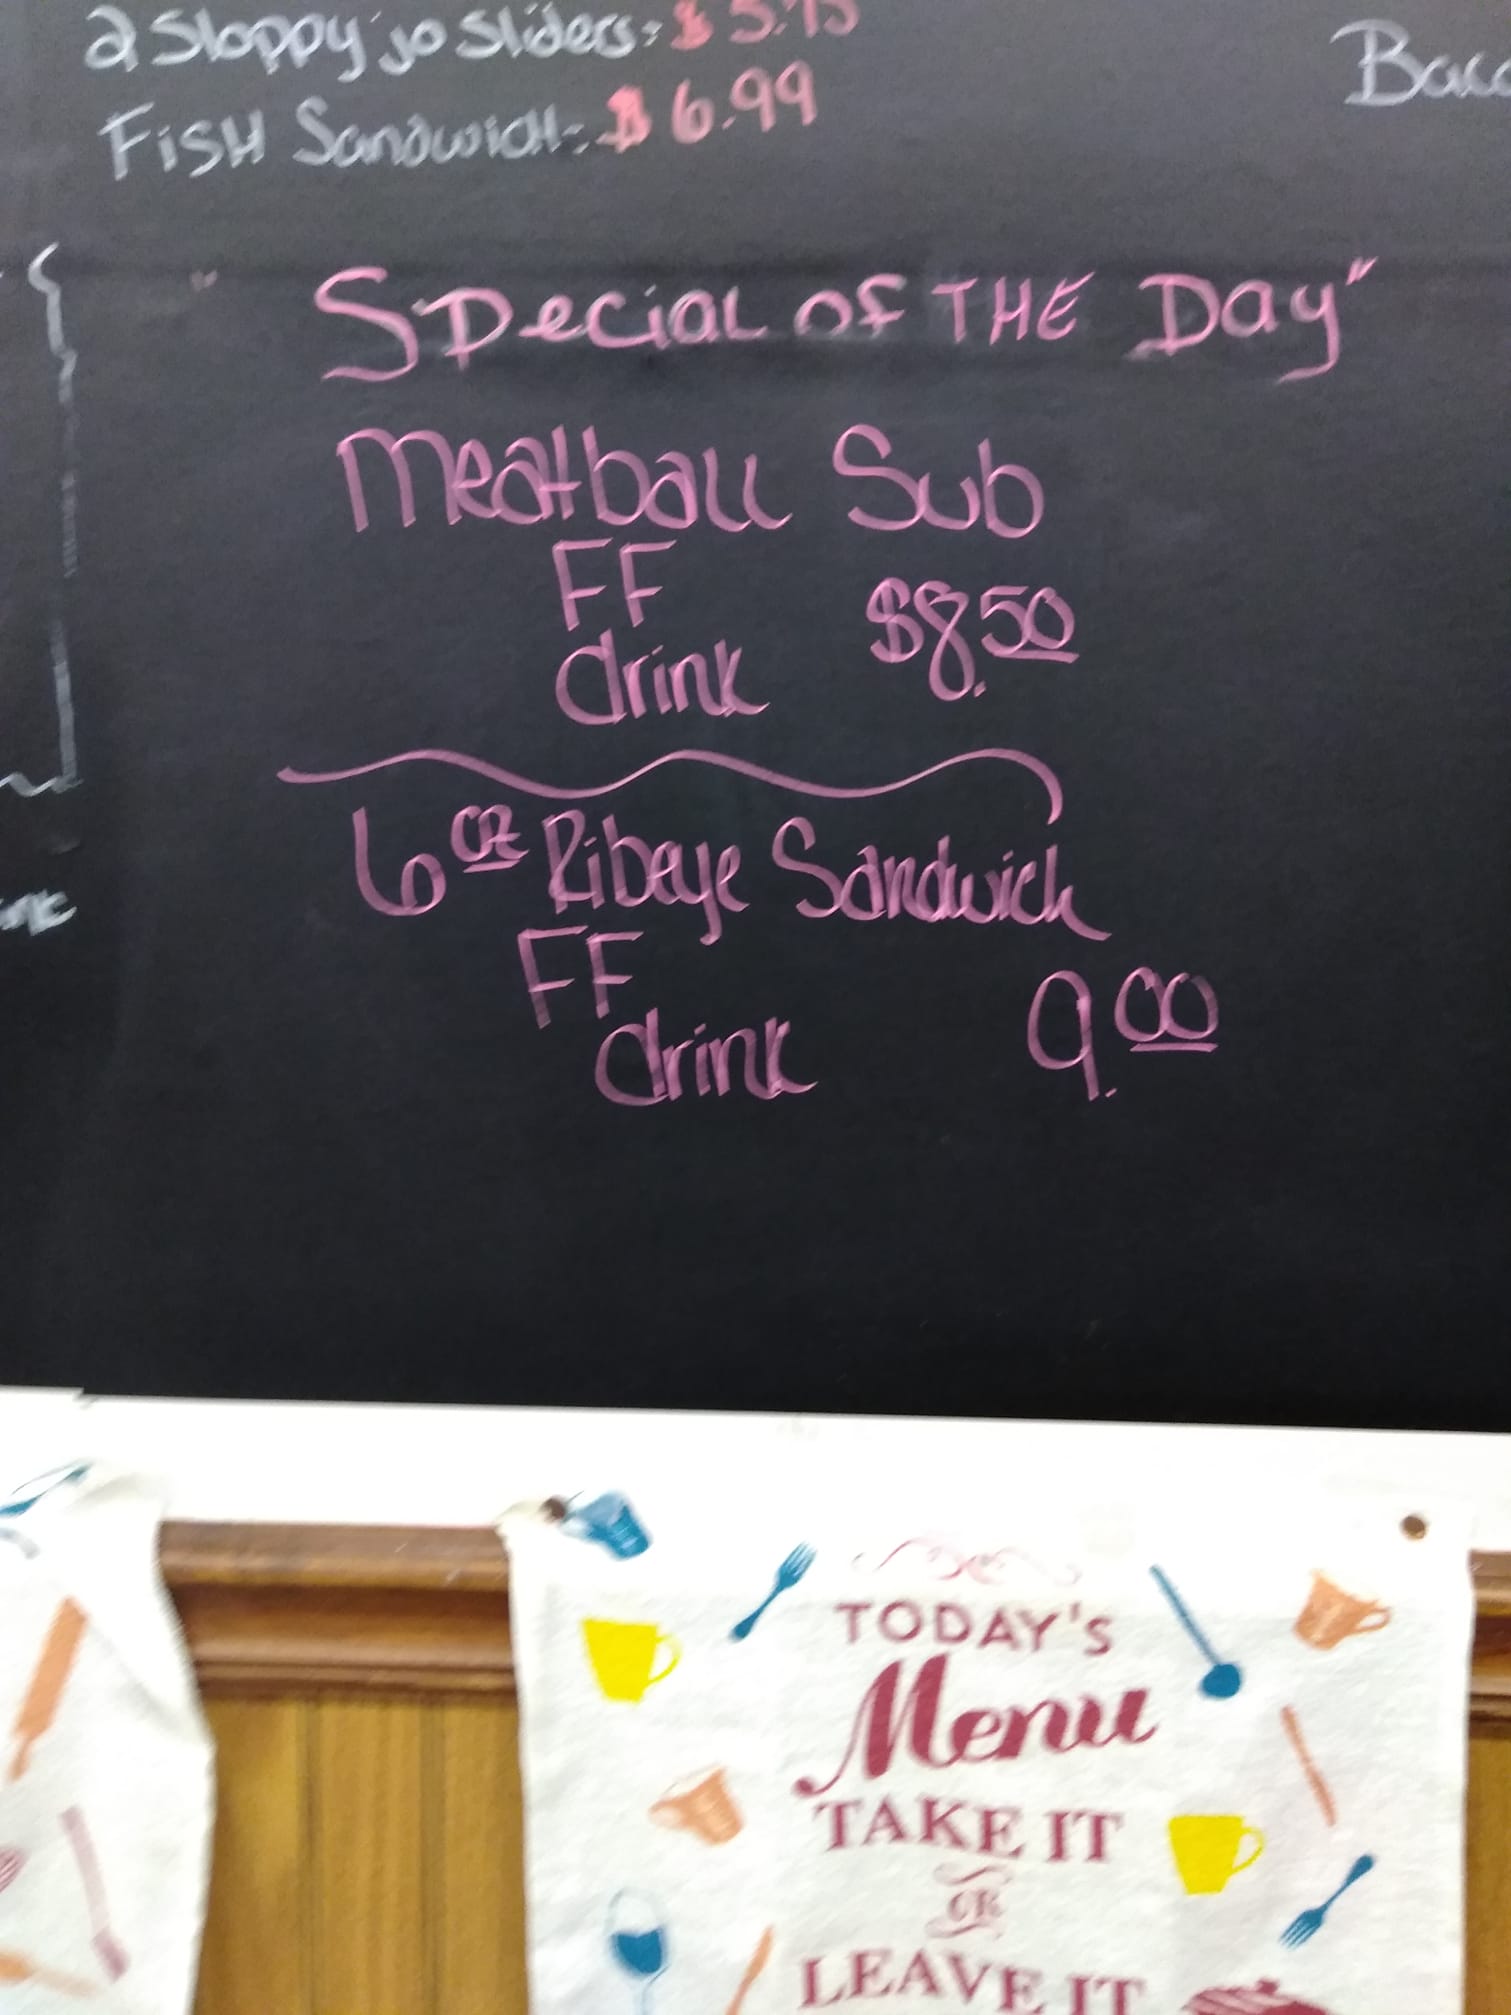 2 Sloppy jo Sliders: $5.95
FISH Sandwich- $6.99
"Special of THE Day"
Meatball Sub
FF
drink $8.50
6 oz Ribeye Sandwich
FF
drink 9.00
TODAY'S
Menu
TAKE IT
OR
LEAVE IT